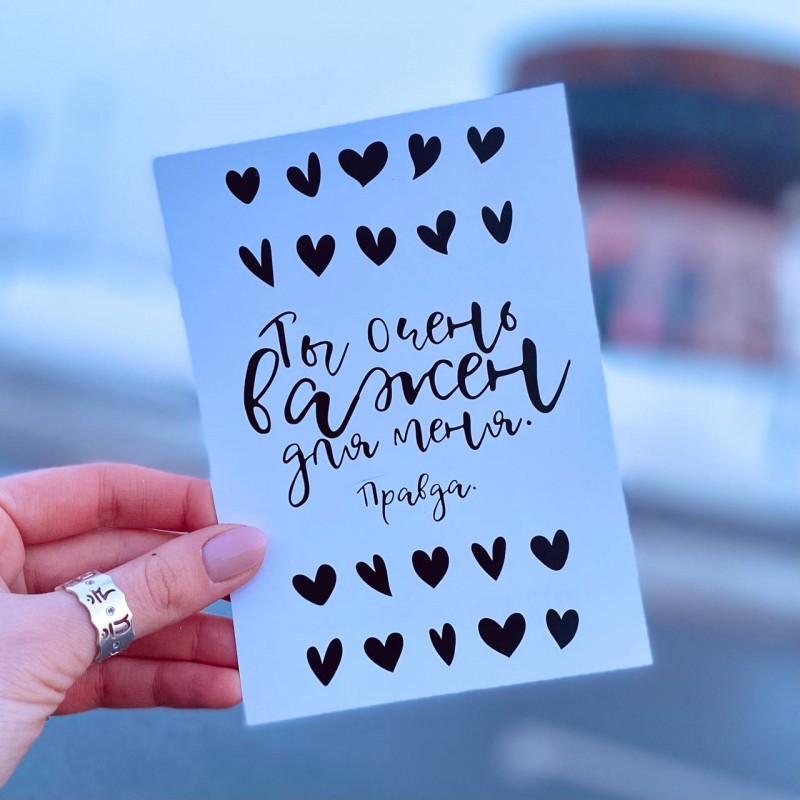 Ты очень
важен
для меня.
Правда.